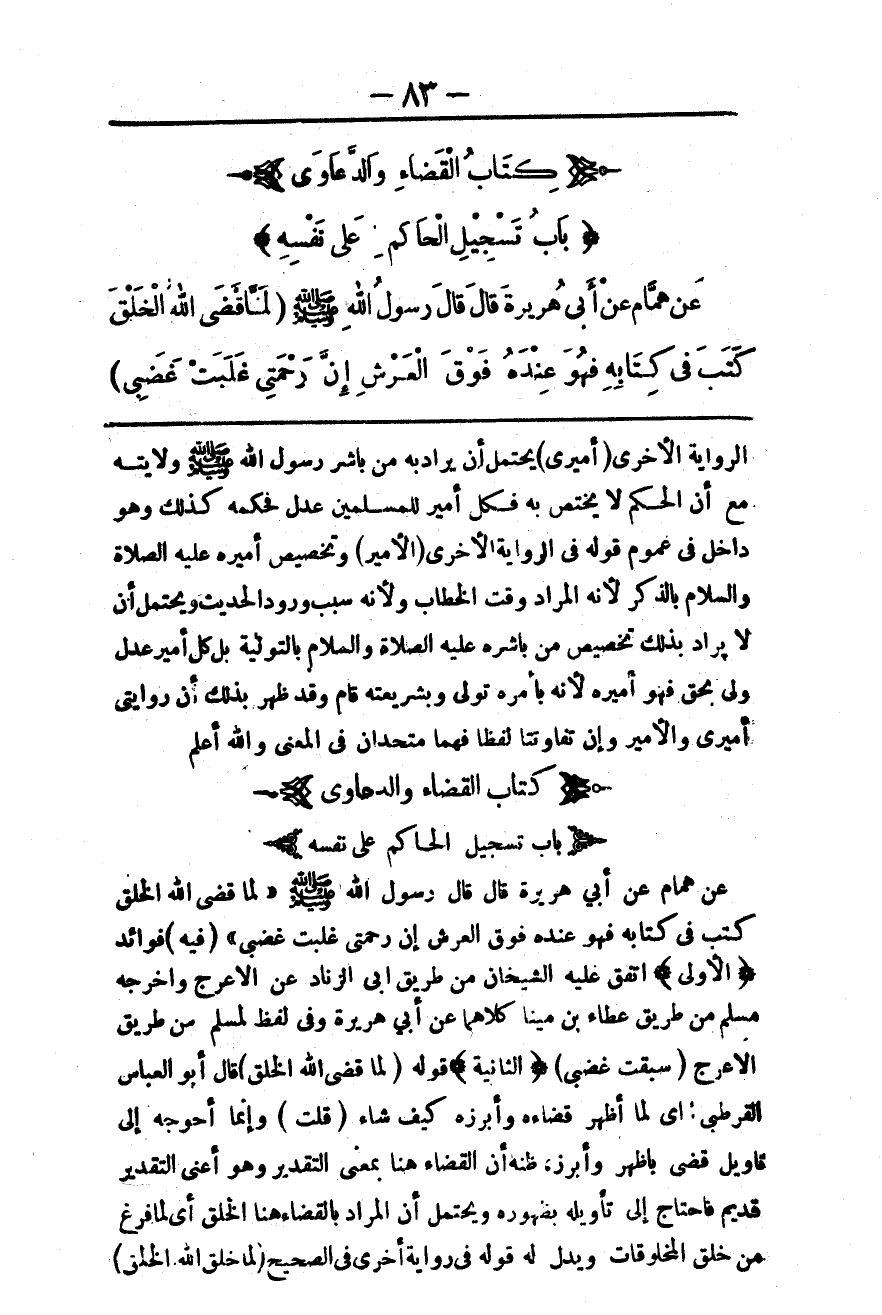 — ٨٣ —
كِتَابُ الْقَضَاءِ وَالدَّعَاوَى
﴿ بَابُ تَسْجِيْلِ الْحَاكِمِ عَلَى نَفْسِهِ ﴾
عَن هَمَّامٍ عَنْ أَبِي هُرِيرةَ قَالَ قَالَ رَسولُ اللهِ ﷺ ( لَمَّا قَضَى اللهُ الْخَلْقَ
كَتَبَ فى كِتَابِهِ فهُوَ عِنْدَهُ فَوْقَ الْعَرْشِ إِنَّ رَحْمَتِي غَلَبَتْ غَضَبِي )
الرواية الأخرى ( أميرى ) يحتمل أن يراد به من باشر رسول الله ﷺ ولايته
مع أن الحكم لا يختص به فكل أمير للمسلمين عدل فحكمه كذلك وهو
داخل فى عموم قوله فى الرواية الأخرى ( الأمير ) وتخصيص أميره عليه الصلاة
والسلام بالذكر لأنه المراد وقت الخطاب ولأنه سبب ورود الحديث ويحتمل أن
لا يراد بذلك تخصيص من باشره عليه الصلاة والسلام بالتولية بل كل أمير عدل
ولى بحق فهو أميره لأنه بأمره تولى وبشريعته قام وقد ظهر بذلك أن روايتى
أميرى والأمير وإن تفاوتتا لفظا فهما متحدان فى المعنى والله أعلم
كتاب القضاء والدعاوى
باب تسجيل الحاكم على نفسه
عن همام عن أبي هريرة قال قال رسول الله ﷺ « لما قضى الله الخلق
كتب فى كتابه فهو عنده فوق العرش إن رحمتى غلبت غضبي » ( فيه ) فوائد
﴿ الأولى ﴾ اتفق عليه الشيخان من طريق ابى الزناد عن الاعرج واخرجه
مسلم من طريق عطاء بن مينا كلاهما عن أبي هريرة وفى لفظ لمسلم من طريق
الاعرج ( سبقت غضبي ) ﴿ الثانية ﴾ قوله ( لما قضى الله الخلق ) قال أبو العباس
القرطبى : اى لما أظهر قضاءه وأبرزه كيف شاء ( قلت ) وإنما أحوجه إلى
تاويل قضى باظهر وأبرز، ظنه أن القضاء هنا بمعنى التقدير وهو أعنى التقدير
قديم فاحتاج إلى تأويله بظهوره ويحتمل أن المراد بالقضاء هنا الخلق أى لما فرغ
من خلق المخلوقات ويدل له قوله فى رواية أخرى فى الصحيح ( لما خلق الله الخلق )